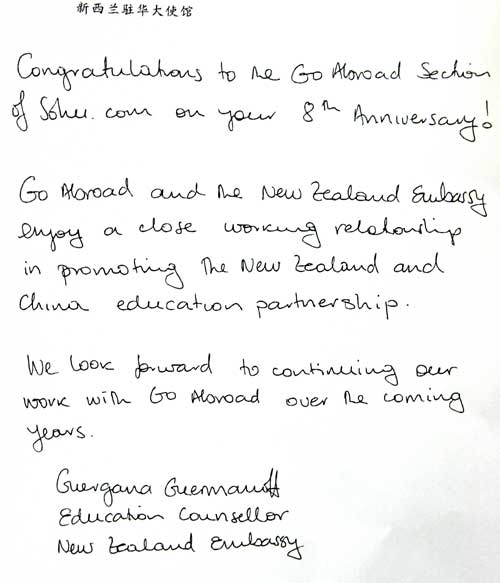 新西兰驻华大使馆
Congratulations to the Go Abroad Section
of Sohu.com on your 8th Anniversary!
Go Abroad and the New Zealand Embassy
enjoy a close working relationship
in promoting the New Zealand and
China education partnership.
We look forward to continuing our
work with Go Abroad over the coming
years.
Guergana Guermanoff
Education Counsellor
New Zealand Embassy